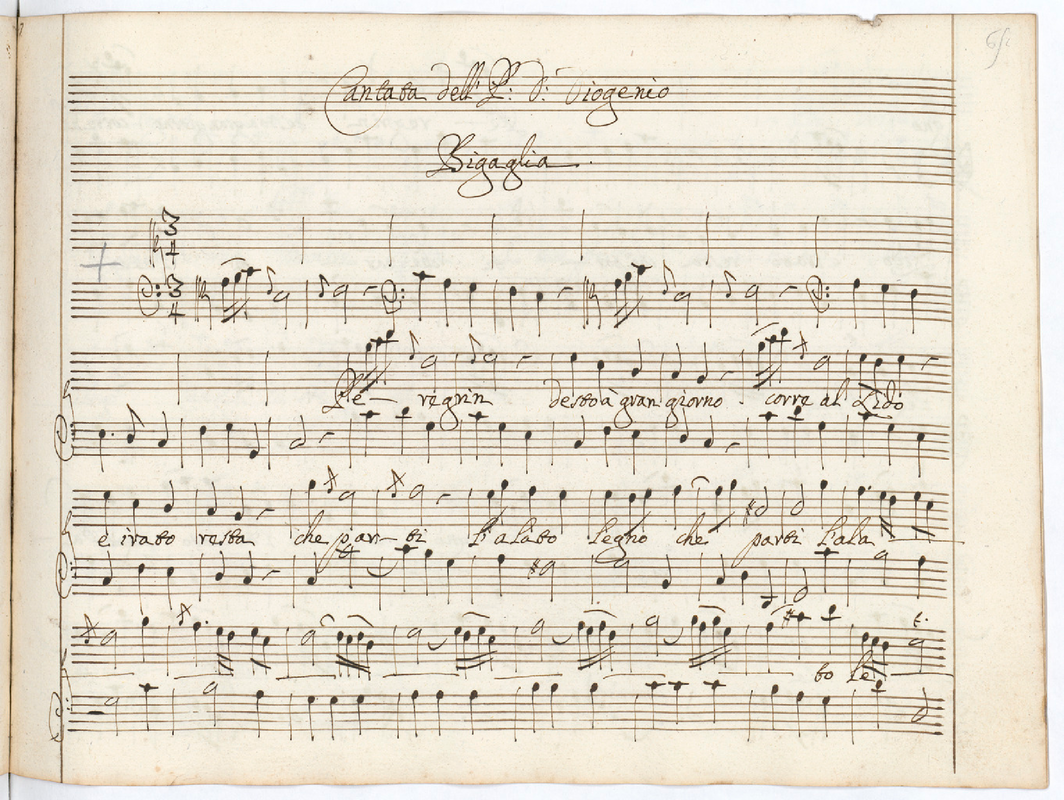 Cantata dell' P: D: Diogenio
Bigaglia.
3
4
3
4
Pe— regrin desto à gran giorno corre al Lido
e irato resta che par— ti l'alato legno che parti l'ala
to le
t.